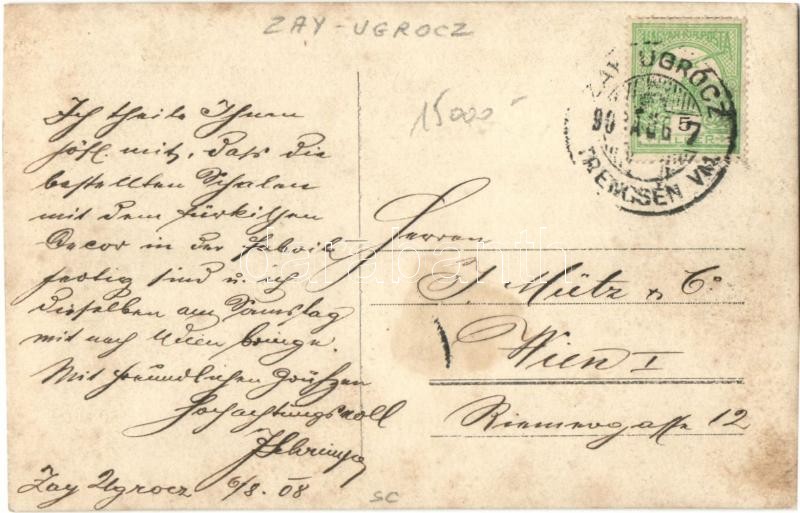 ZAY-UGROCZ
15000
MAGYAR KIR. POSTA
5
ZAY-UGRÓCZ
908 AUG 7
TRENCSÉN VM.
Ich theile Ihnen
höfl. mit, dass die
bestellten Schalen
mit dem türkischen
Decor in der Fabrik
fertig sind u. ich
dieselben am Samstag
mit nach Wien bringe.
Mit freundlichen Grüssen
Hochachtungsvoll
Zay Ugrocz 6/8. 08
Herren
J. Mütz & Co.
Wien I
Riemergasse 12
SC
darabanth